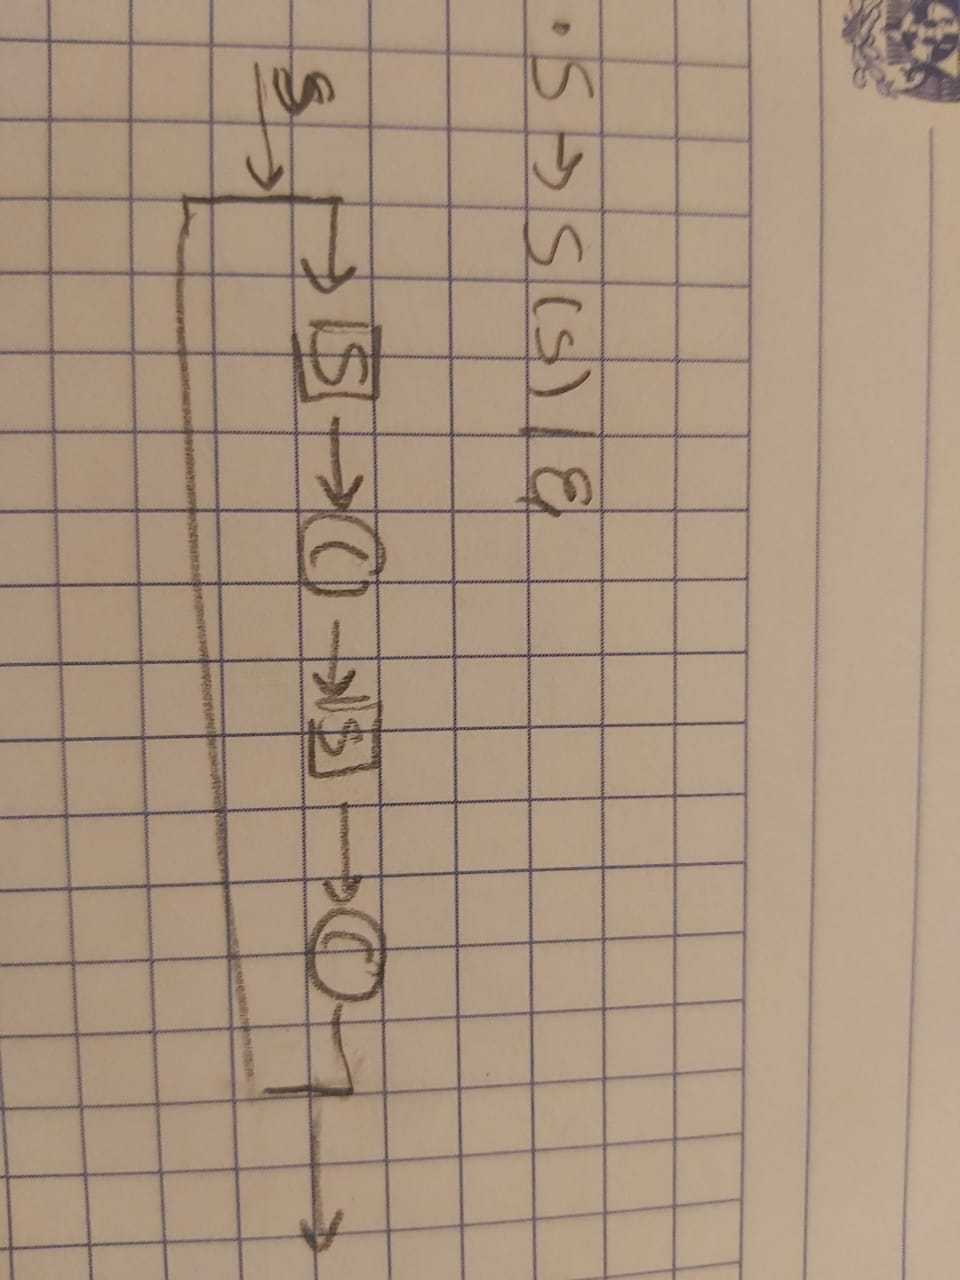 · S → S (S) | ε
S
S → ( → S → )